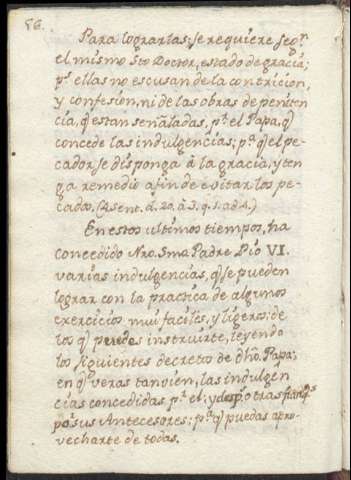 86.
Para lograrlas; se requiere segn.
el mismo Sto Doctor, estado de gracia;
pr. ellas no escusan de la contricion,
y confesion, ni de las obras de peniten
cia, q estan señaladas, pr. el Papa, q
concede las indulgencias; pa. q el pe-
cador se disponga â la gracia, y ten
ga remedio afin de evitar los pe-
cados. (4 sent. d. 20. â 3. q. 1. ad 4.)
En estos ultimos tiempos, ha
concedido Nro. Smo. Padre Pio VI.
varias indulgencias, q se pueden
lograr con la practica de algunos
exercicios mui faciles, y ligeros; de
los q puedes instruirte, leyendo
los siguientes decretos de dho. Papa;
en q veras tanvien, las indulgen
cias concedidas pr. el; y despo otras
por sus Antecesores; pa. q puedas apro-
vecharte de todas.